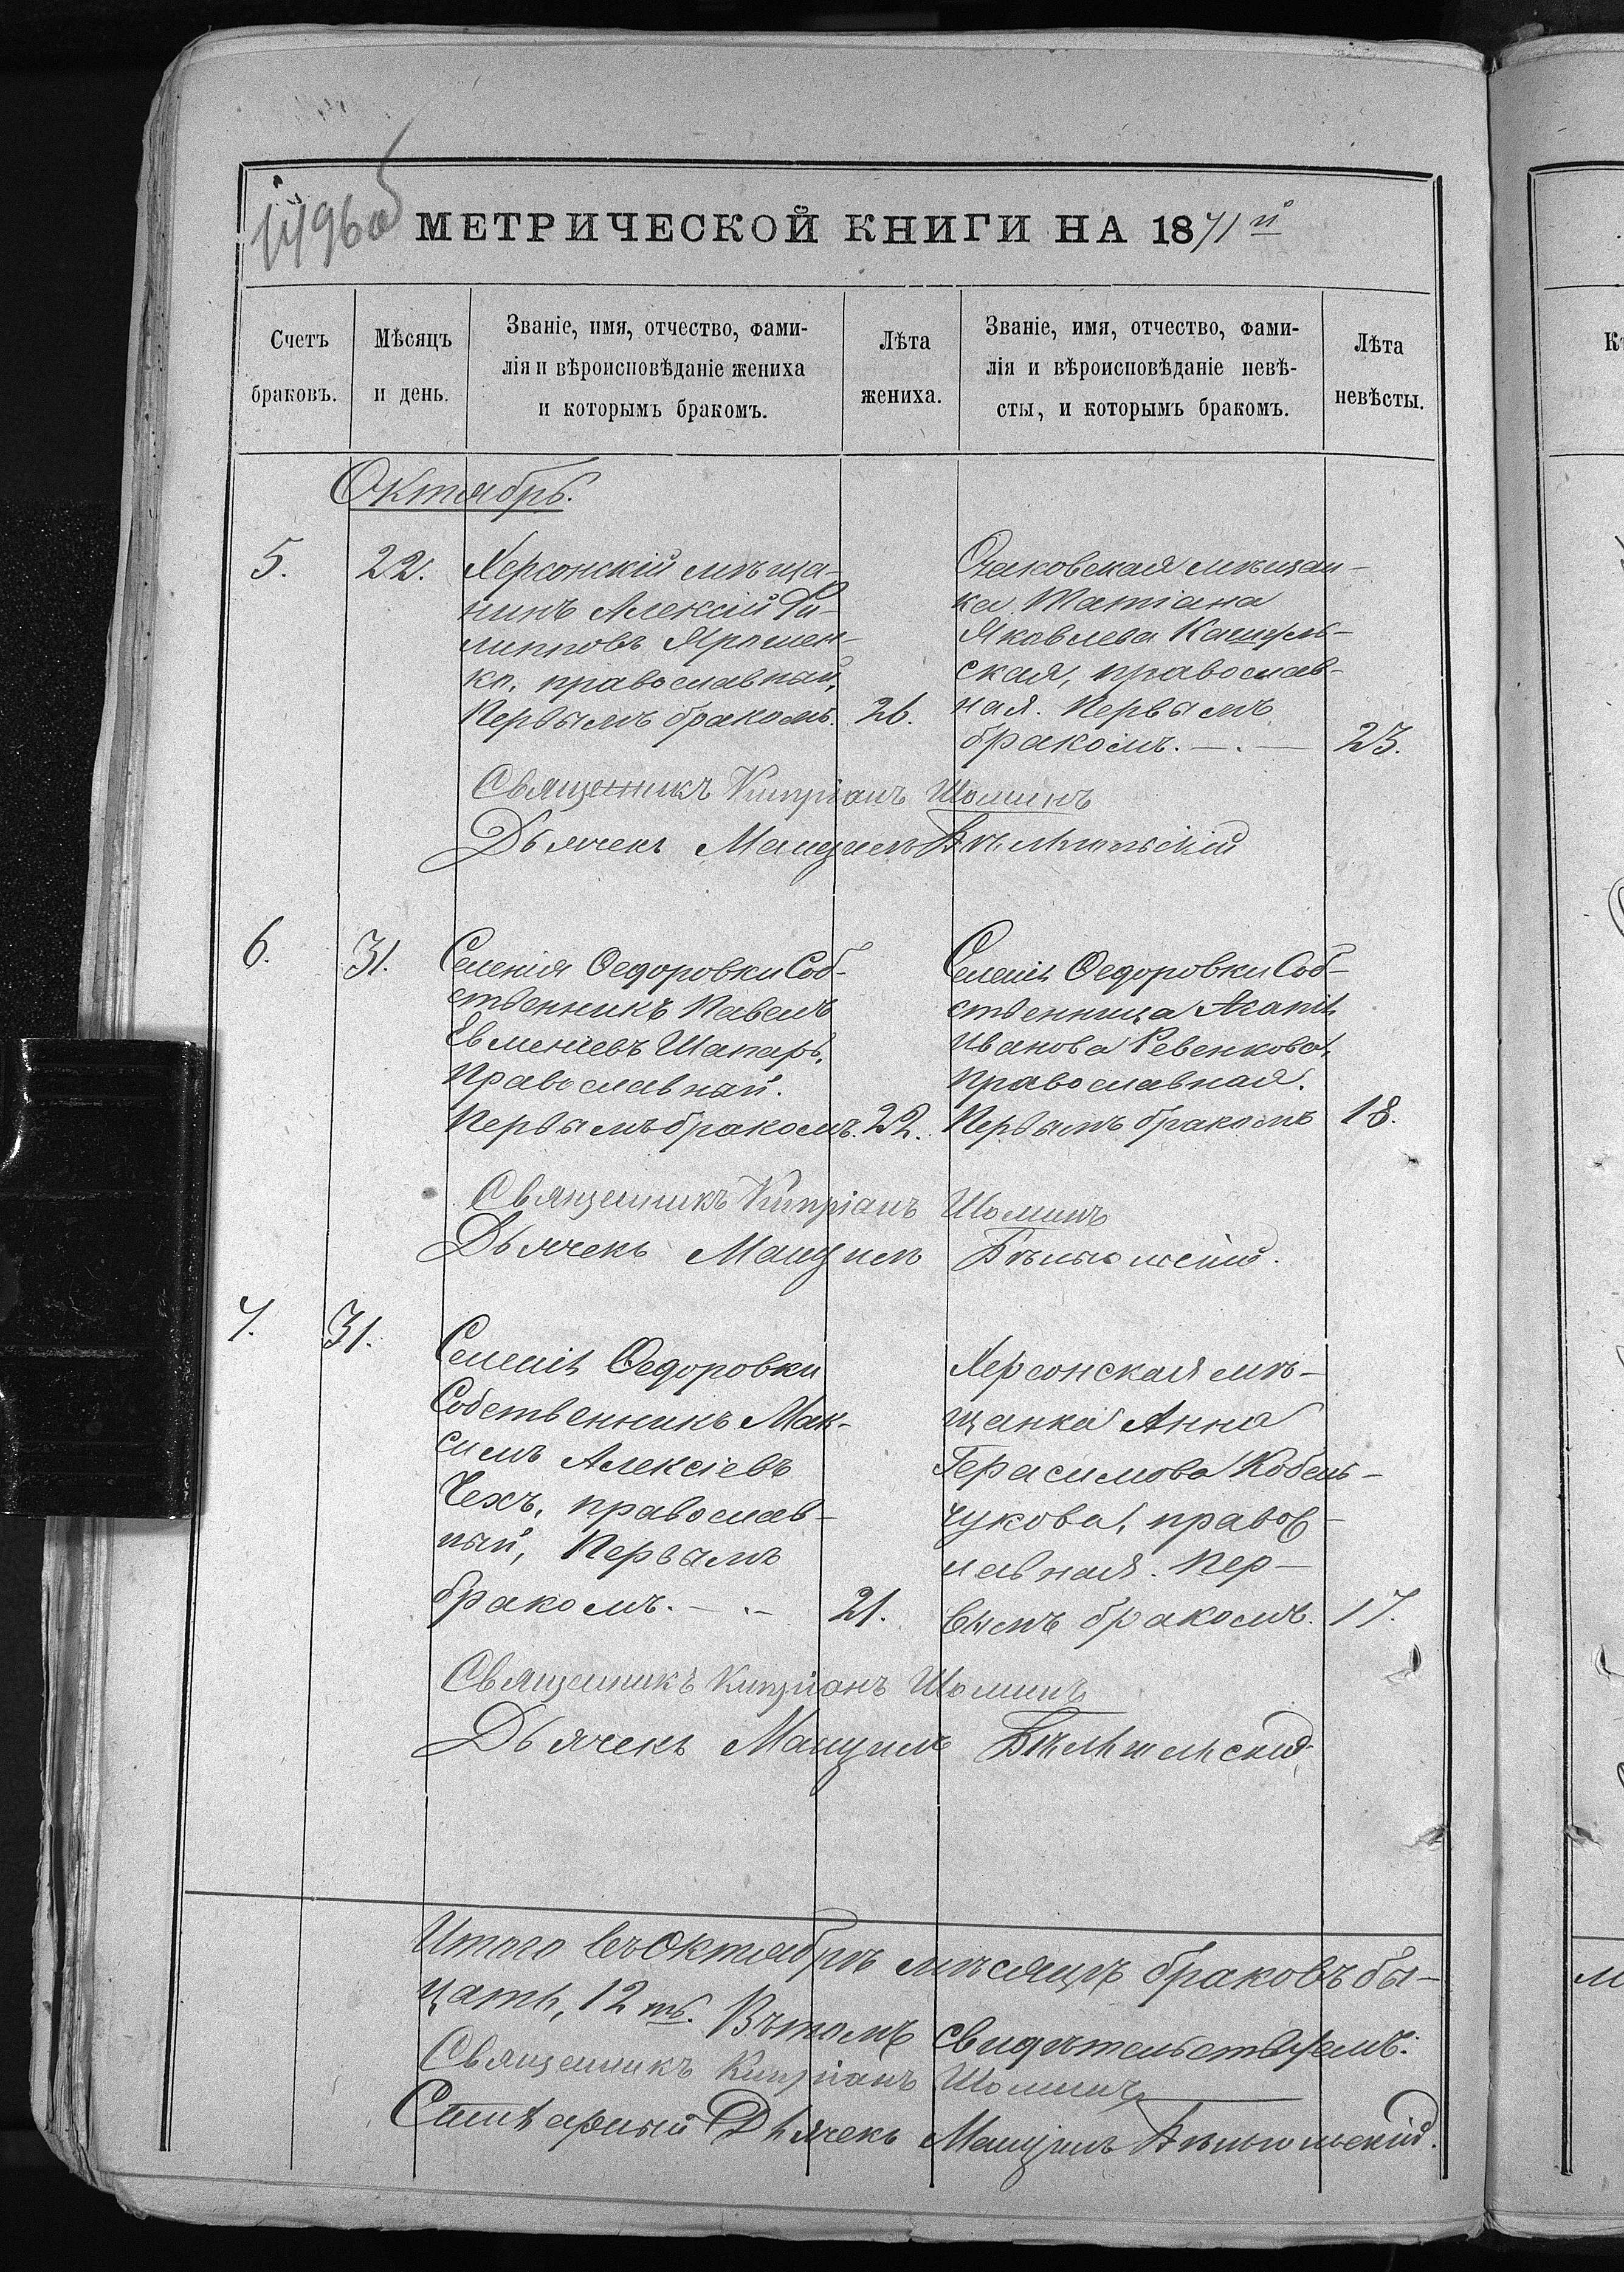 1496 об
МЕТРИЧЕСКОЙ КНИГИ НА 1871 й
Счетъ браковъ.
Мѣсяцъ и день.
Званіе, имя, отчество, фами-
лія и вѣроисповѣданіе жениха
и которымъ бракомъ.
Лѣта жениха.
Званіе, имя, отчество, фами-
лія и вѣроисповѣданіе невѣ-
сты, и которымъ бракомъ.
Лѣта невѣсты.
Октябрь.
5.
22.
Херсонскій мѣща-
нинъ Алексій Фи-
липповъ Яромен-
ко, православный,
Первымъ бракомъ.
26.
Очаковская мѣщан-
ка Татіана
Яковлева
ская, православ-
ная. Первымъ
бракомъ. — . —
23.
Священникъ Кипріанъ Шоминъ
Дьячекъ
6.
31.
Селенія Ѳедоровки Соб-
ственникъ Павелъ
Евменіевъ Шапарь,
Православный.
Первымъ бракомъ.
22.
Селенія Ѳедоровки Соб-
ственница Агапія
Иванова Ревенкова,
Православная.
Первымъ бракомъ
18.
Священникъ Кипріанъ Шоминъ
Дьячекъ
7.
31.
Селенія Ѳедоровки
Собственникъ Мак-
симъ Алексіевъ
Чехъ, православ-
ный, Первымъ
бракомъ. — . —
21.
Херсонская мѣ-
щанка Анна
Герасимова Кобель-
чукова, правос-
лавная. Пер-
вымъ бракомъ.
17.
Священникъ Кипріанъ Шоминъ
Дьячекъ
Итого въ Октябрѣ мѣсяцѣ браковъ
12 ть. Въ томъ свидѣтельствуемъ:
Священникъ Кипріанъ Шоминъ
Дьячекъ